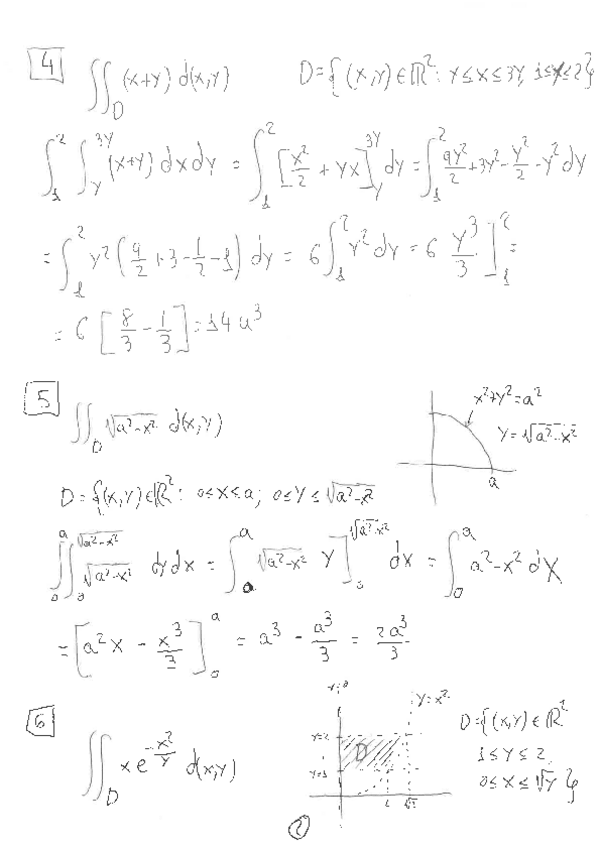 4 ∬_D (x+y) d(x,y)    D={(x,y)∈ℝ²: y≤x≤3y, 1≤y≤2}
∫_1^2 ∫_y^{3y} (x+y) dx dy = ∫_1^2 [x²/2 + yx]_y^{3y} dy = ∫_1^2 9y²/2 + 3y² - y²/2 - y² dy
= ∫_1^2 y² (9/2 + 3 - 1/2 - 1) dy = 6 ∫_1^2 y² dy = 6 y³/3 ]_1^2 =
= 6 [8/3 - 1/3] = 14 u³
5 ∬_D √(a²-x²) d(x,y)
x²+y²=a²
y=√(a²-x²)
a
D={(x,y)∈ℝ²: 0≤x≤a; 0≤y≤√(a²-x²)
∫_0^a ∫_0^{√(a²-x²)} √(a²-x²) dy dx = ∫_0^a √(a²-x²) y ]_0^{√(a²-x²)} dx = ∫_0^a a²-x² dx
= [a²x - x³/3]_0^a = a³ - a³/3 = 2a³/3
6 ∬_D x e^{-x²/y} d(x,y)
x=0
y=x²
y=2
D
y=1
1 √2
D={(x,y)∈ℝ²
1≤y≤2,
0≤x≤√y }
2